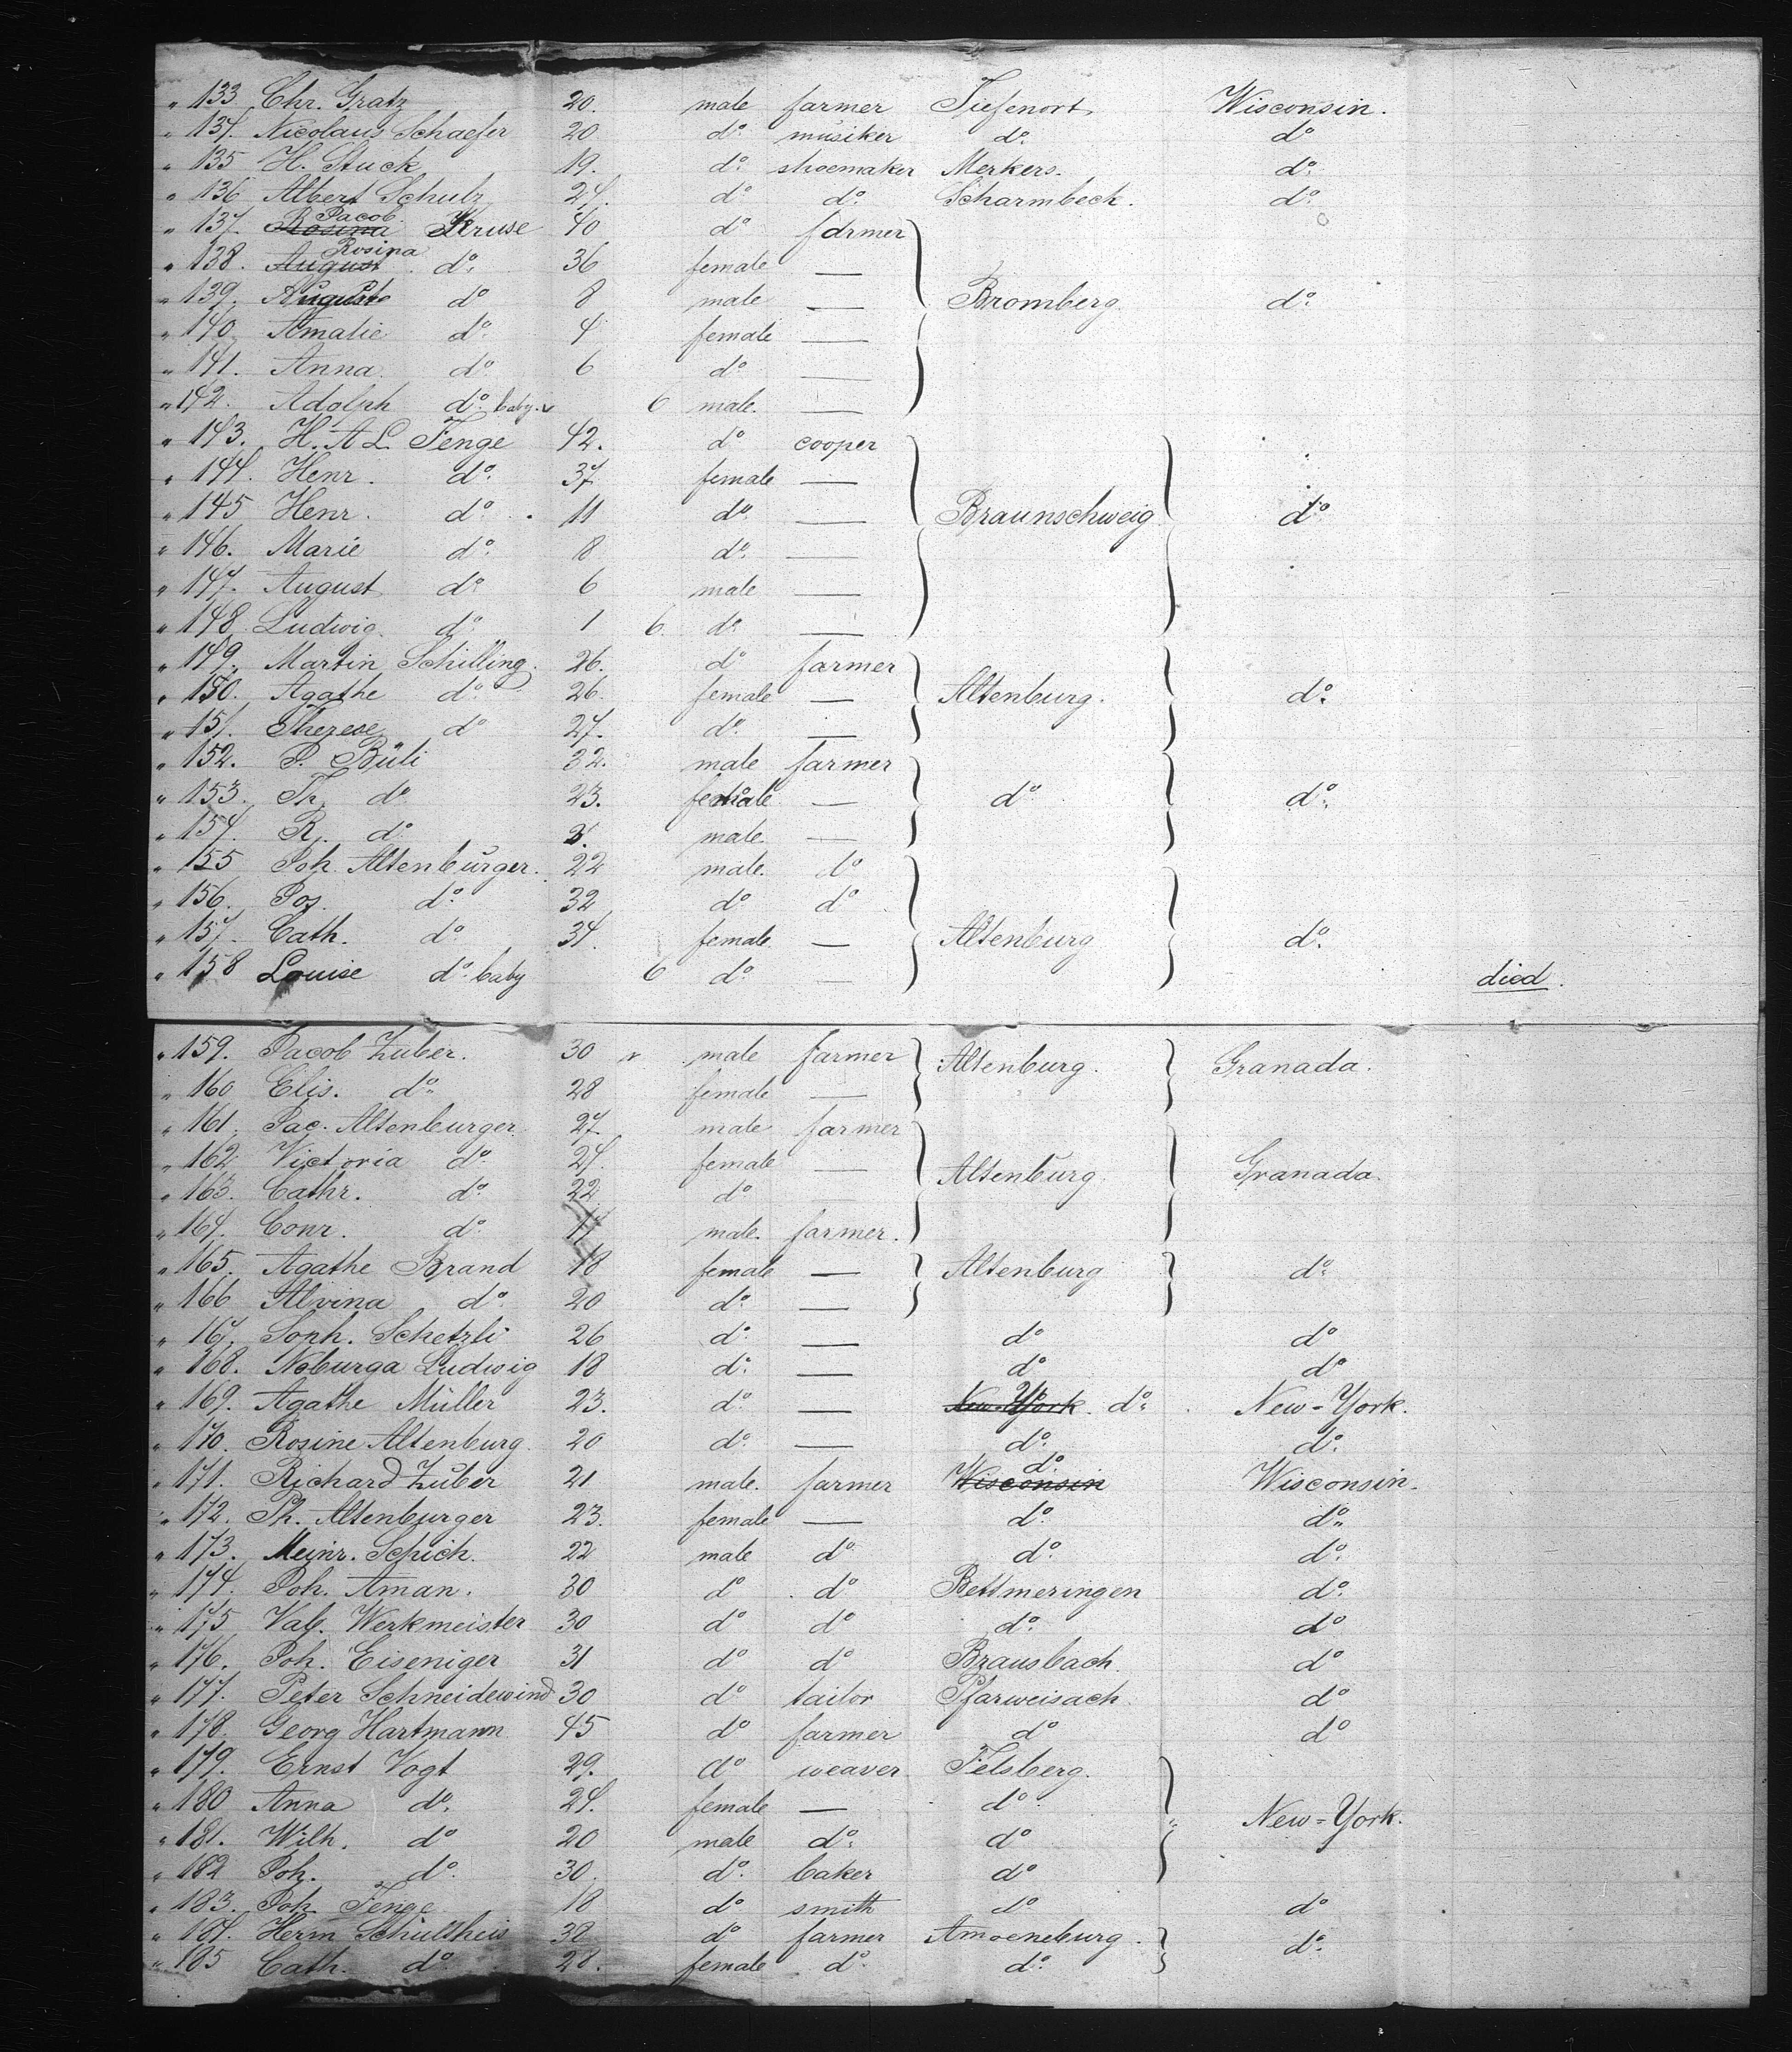 " 133 Chr. Gratz 20. male farmer Tiefenort. Wisconsin.
" 134. Nicolaus Schaefer 20 do. musiker do. do
" 135 H. Stuck 19. do. shoemaker Merkers. do.
" 136 Albert Schulz 24. do do. Scharmbeck. do.
" 137. Rosina Jacob Kruse 40 do farmer
" 138. August Rosina do. 36 female —
" 139. August do 8 male — Bromberg. do.
" 140. Amalie do. 4 female —
" 141. Anna do. 6 do —
" 142. Adolph do. baby. 6 male. —
" 143. H. A L. Fenge 42. do cooper
" 144. Henr. do. 37 female —
" 145 Henr. do. 11 do. — Braunschweig do
" 146. Marie do. 8 do. —
" 147. August do. 6 male —
" 148 Ludwig do. 1 6. do. —
" 149. Martin Schilling. 26. do farmer
" 150. Agathe do. 26. female — Altenburg. do.
" 151. Therese do 27. do. —
" 152. J. Büli 32. male farmer
" 153. Th. do 23. female — do do.
" 154. R. do. male. —
" 155 Joh. Altenburger. 22 male. do
" 156. Jos. do. 32 do do
" 157. Cath. do. 34. female — Altenburg do.
" 158 Louise do. baby 6 do. — died.
" 159. Jacob Zuber. 30 male farmer Altenburg. Granada.
" 160 Elis. do. 28 female —
" 161. Jac. Altenburger 27 male farmer
" 162 Victoria do. 24. female — Altenburg. Granada.
" 163. Cathr. do. 22 do —
" 164. Conr. do. 17 male. farmer.
" 165. Agathe Brand 18 female — Altenburg do.
" 166 Alvina do. 20 do. —
" 167. Soph. Schetzli 26 do. — do do
" 168. Noburga Ludwig 18 do. — do do
" 169. Agathe Müller 23. do. — New-York. do. New-York.
" 170. Rosine Altenburg. 20 do. — do. do.
" 171. Richard Zuber 21 male. farmer Wisconsin do. Wisconsin.
" 172. Th. Altenburger 23. female — do. do.
" 173. Meinr. Schich. 22 male do do. do.
" 174. Joh. Aman. 30 do do Bettmeringen do.
" 175 Val. Werkmeister 30 do do do. do
" 176. Joh. Eiseniger 31 do do Brausbach. do
" 177. Peter Schneidewind 30 do tailor Pfarweisach. do
" 178. Georg Hartmann 45 do farmer do do
" 179. Ernst Vogt 29. do weaver Felsberg.
" 180 Anna do. 24. female — do. New-York.
" 181. Wilh. do 20 male do. do
" 182 Joh. do. 30. do. baker do
" 183. Joh. Fenge 18 do smith do do
" 184. Herm Schultheis 38 do farmer Amoeneburg. do.
" 185 Cath. do. 28. female do. do.